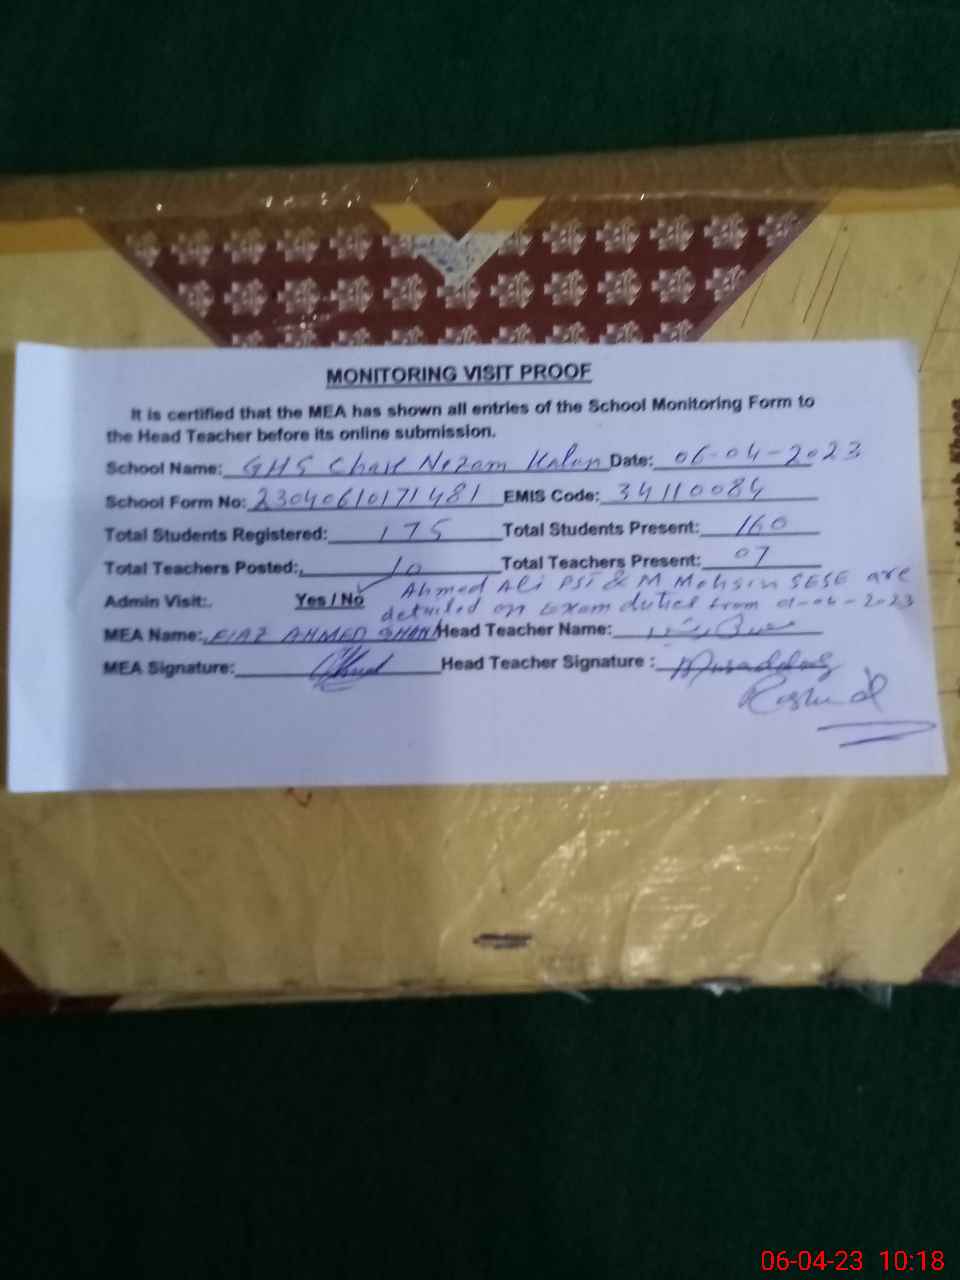 MONITORING VISIT PROOF
It is certified that the MEA has shown all entries of the School Monitoring Form to
the Head Teacher before its online submission.
School Name: GHS Chak Nezam Kalan Date: 06-04-2023
School Form No: 23040610171481 EMIS Code: 34110084
Total Students Registered: 175 Total Students Present: 160
Total Teachers Posted: 10 Total Teachers Present: 07
Ahmed Ali PST & M Mohsin SESE are
Admin Visit: Yes / No detailed on Exam duties from 01-04-2023
MEA Name: FIAZ AHMED Head Teacher Name:
MEA Signature: Head Teacher Signature :
Rashid
06-04-23 10:18